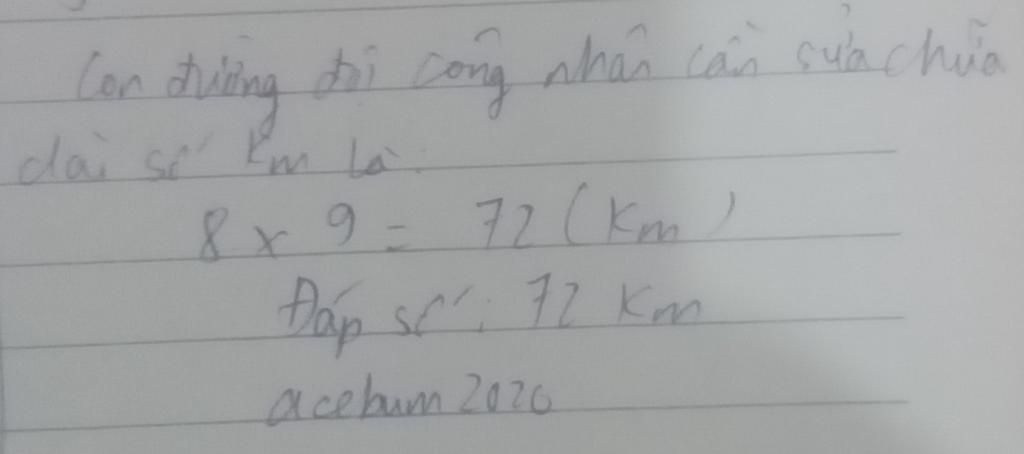 Con đường đội công nhân cần sửa chữa
dài số km là:
8 x 9 = 72 (km)
Đáp số: 72 km
acebum2020